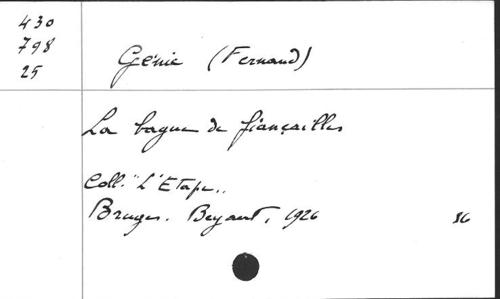 430
798
25
Génie (Fernand)
La bague de fiançailles
Coll. "L'Etape"
Bruges. Beyaert, 1926 16